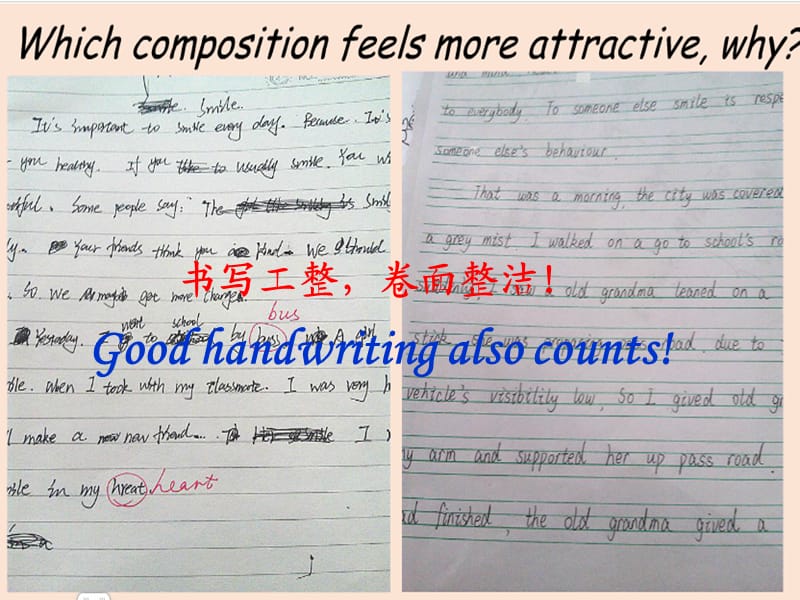 Which composition feels more attractive, why?
Smile.
It's important to smile every day. Because. It's
you healthy. If you to usually smile. You
Some people say: "The smile
Your friends think you is kind. We should
So we get more change.
bus
went school
Yesterday. I to by buss A girl
when I took with my classmate. I was very
make a new friend... I
in my hreat heart
and mind
to everybody. To someone else smile is
someone else's behaviour.
That was a morning, the city was covered
a grey mist. I walked on a go to school's
I saw a old grandma leaned on a
stick, she was road. due to
vehicle's visibility low, So I gived old
my arm and supported her up pass road.
finished, the old grandma gived a
书写工整，卷面整洁!
Good handwriting also counts!